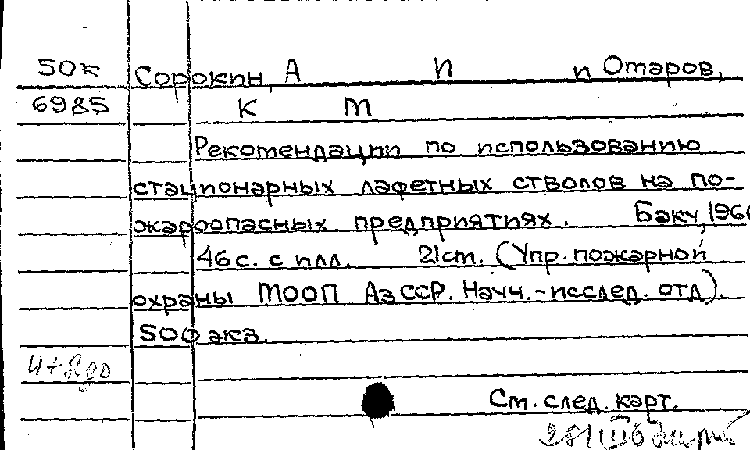 50к Сорокин, А П и Отаров,
6985 К М
Рекомендации по использованию
стационарных лафетных стволов на по-
жароопасных предприятиях. Баку, 196
46 с. с илл. 21 ст. (Упр. пожарной
охраны МООП АзССР. Научн.-исслед. отд).
500 экз.
Ст. след. карт.